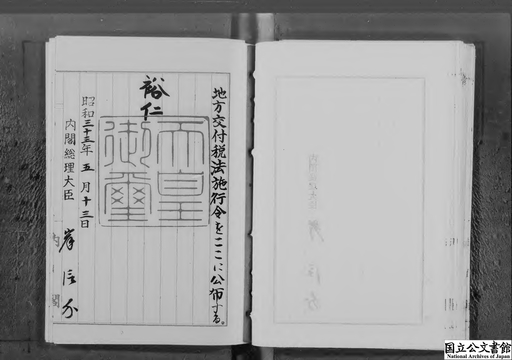 地方交付税法施行令をここに公布する。
裕仁
天皇
御璽
昭和三十三年五月十三日
内閣総理大臣 岸信介
内閣
国立公文書館
National Archives of Japan